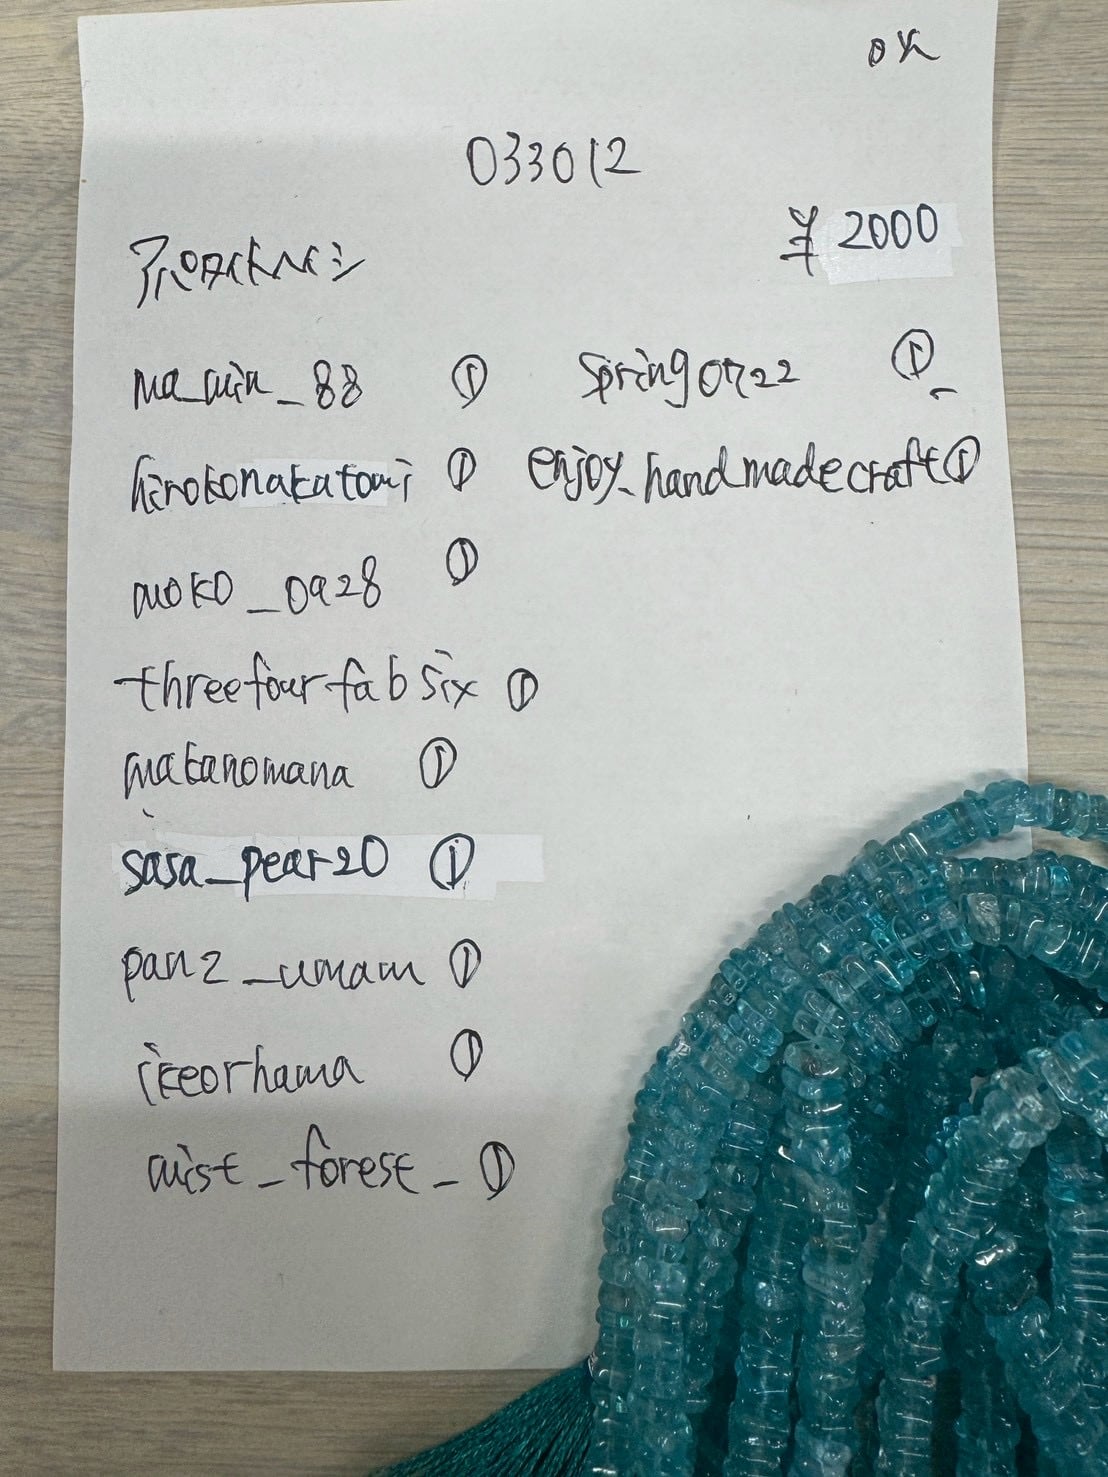 OK
033012
¥ 2000
ma_min_88 ①
spring0722 ①
hirokonakatomi ①
enjoy_handmadecraft ①
moko_0928 ①
threefourfabsix ①
makanomana ①
sasa_pear20 ①
pan2_umam ①
ikeorhama ①
mist_forest_ ①